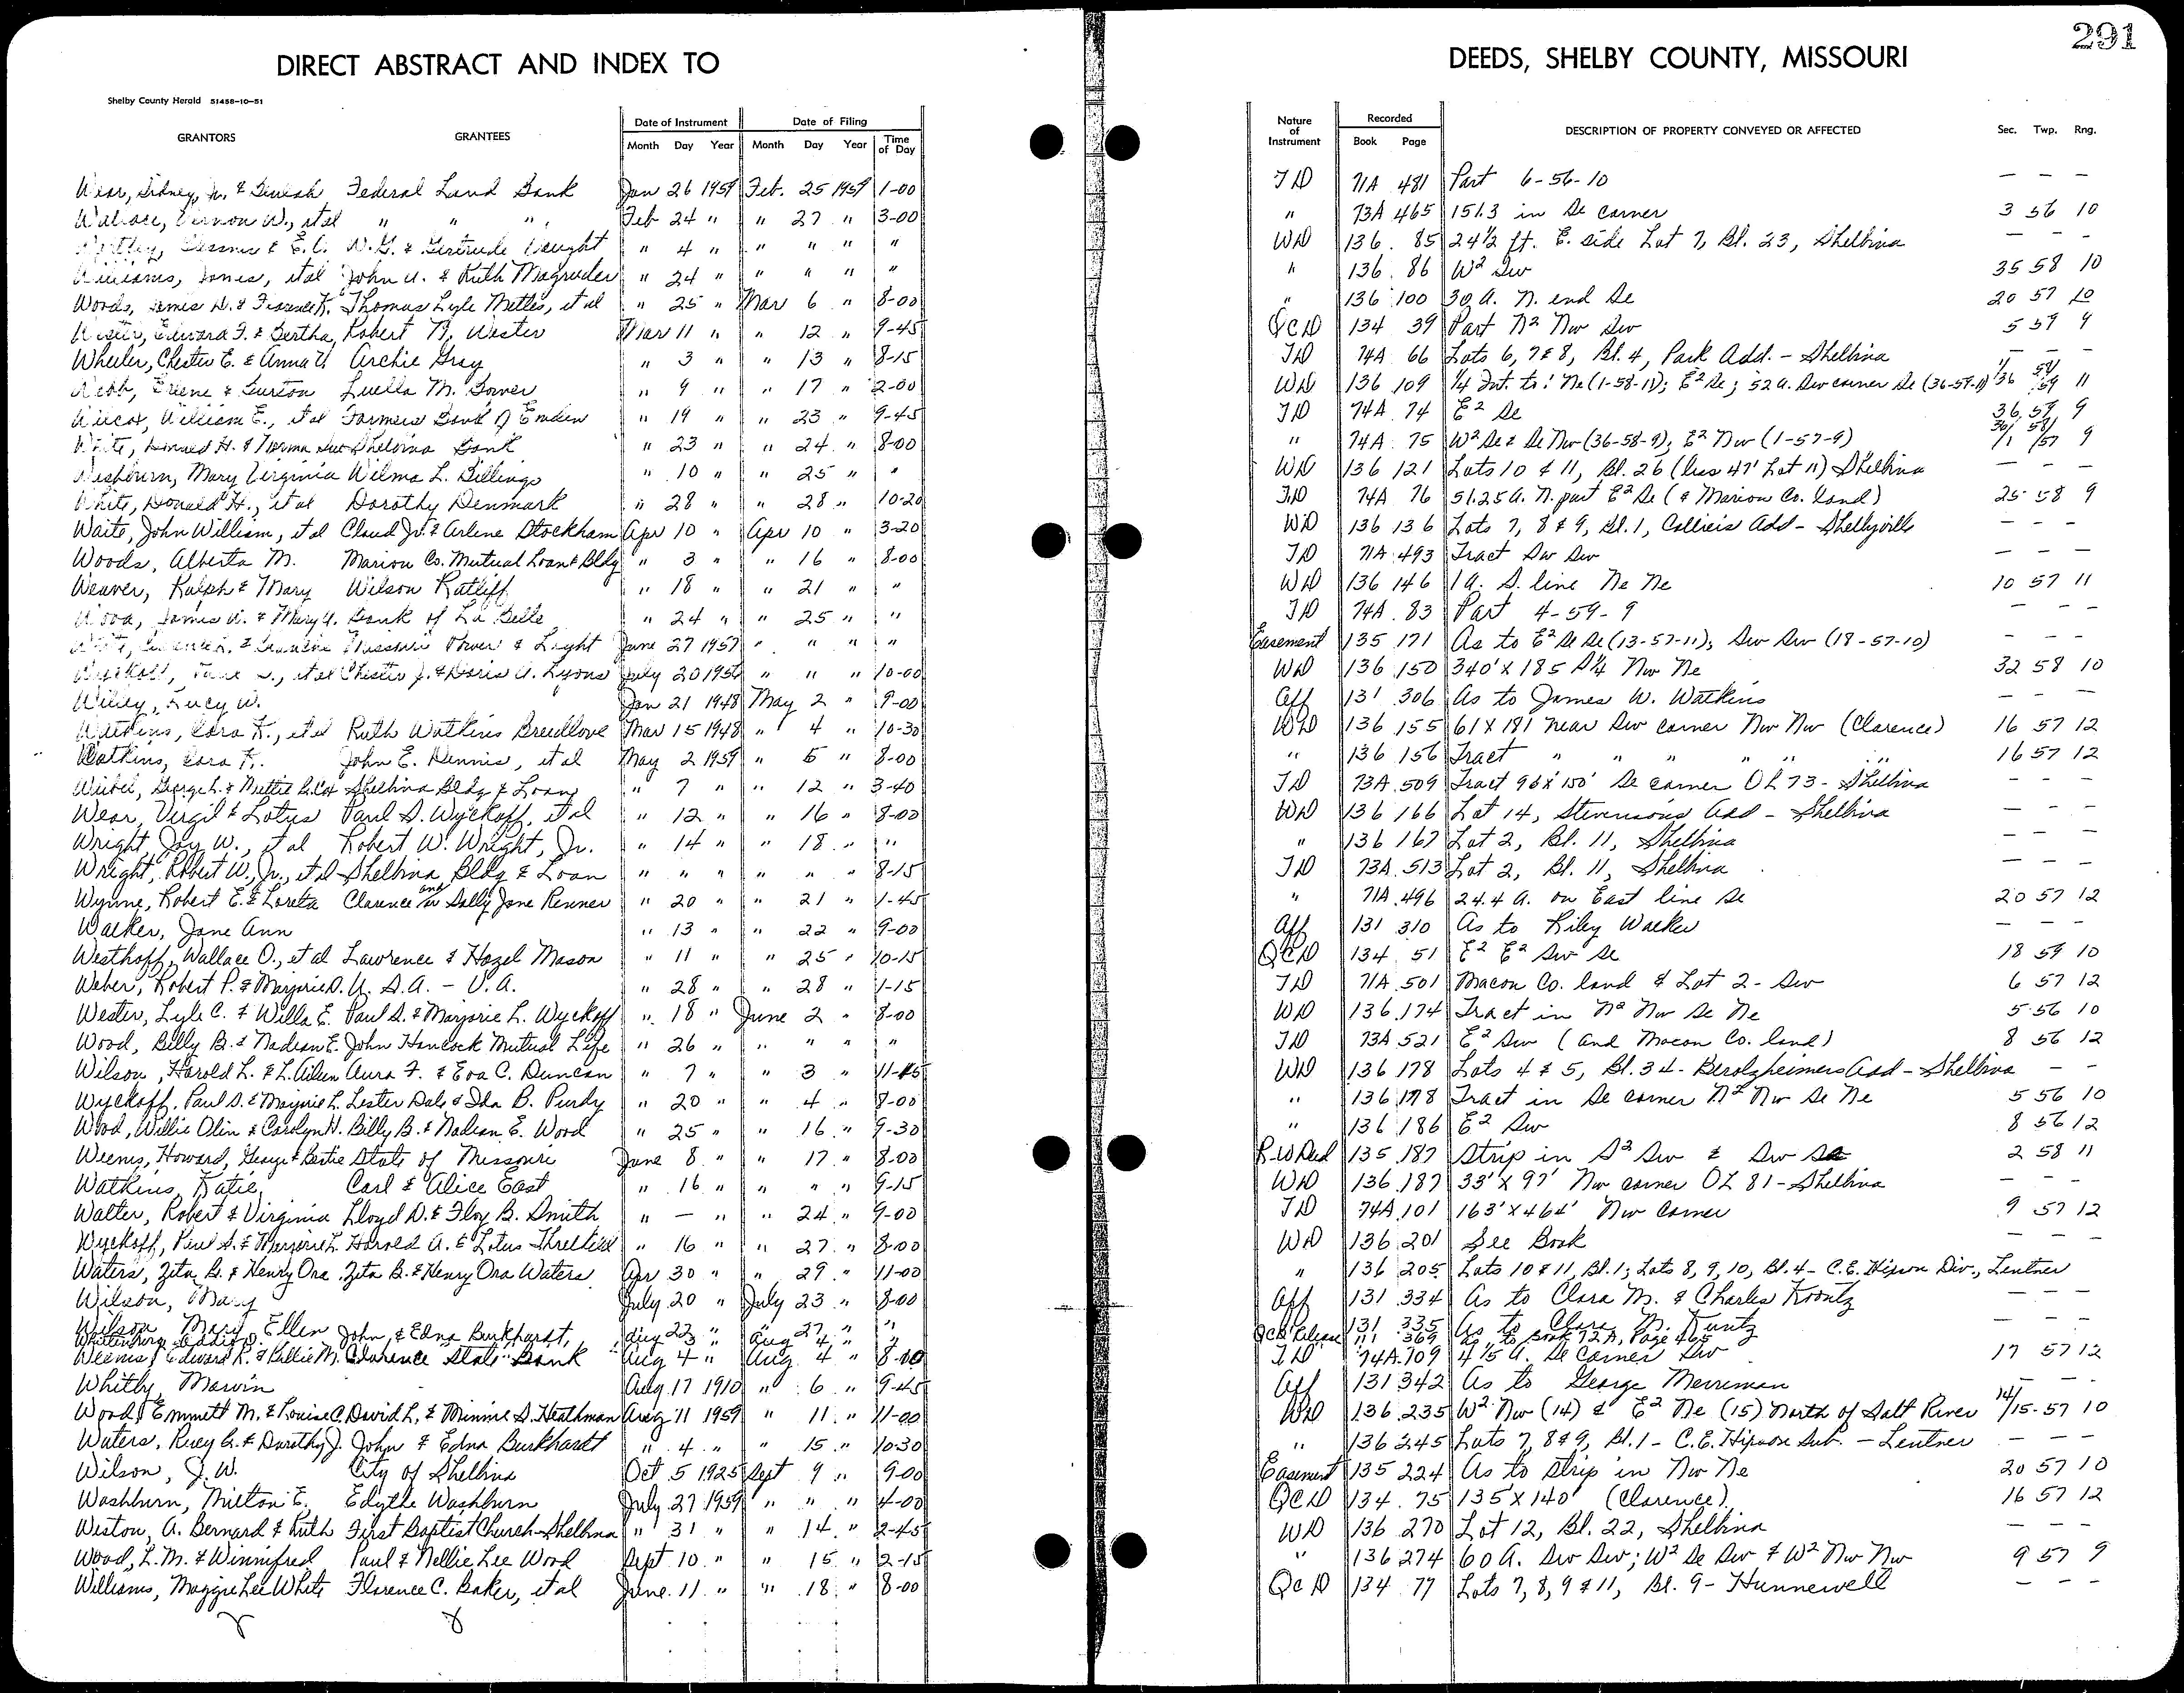 291
DIRECT ABSTRACT AND INDEX TO DEEDS, SHELBY COUNTY, MISSOURI
Shelby County Herald 51458-10-51
GRANTORS GRANTEES Date of Instrument Date of Filing Nature of Instrument Recorded DESCRIPTION OF PROPERTY CONVEYED OR AFFECTED Sec. Twp. Rng.
Month Day Year Month Day Year Time of Day Book Page
Wear, Sidney, Jr. & Beulah Federal Land Bank Jan 26 1959 Feb. 25 1959 1-00 TD 71A 481 Part 6-56-10 — — —
Wallace, Vernon W., et al " " " Feb 24 " " 27 " 3-00 " 73A 465 151.3 in Se corner 3 56 10
& E. C. W. G. & Gertrude Vaught " 4 " " " " " WD 136 85 24½ ft. E. side Lot 7, Bl. 23, Shelbina — — —
Williams, James, et al John A. & Ruth Magruder " 24 " " " " " " 136 86 W² Sw 35 58 10
Woods, James H. & Thomas Lyle Mettes, et al " 25 " Mar 6 " 8-00 " 136 100 30 A. N. end Se 20 57 10
Wester, Edward F. & Bertha, Robert N. Wester Mar 11 " " 12 " 9-45 QCD 134 39 Part N² Nw Sw 5 59 9
Wheeler, Chester E. & Anna V. Archie Gray " 3 " " 13 " 8-15 TD 74A 66 Lots 6, 7 & 8, Bl. 4, Park Add. - Shelbina — — —
Webb, & Burton Luella M. Bower " 9 " " 17 " 2-00 WD 136 109 ¼ Int. to: Ne (1-58-11); E² Se; 52 a. Sw corner Se (36-59-11) 1/36 58/59 11
Wilcox, William E., et al Farmers Bank of Emden " 19 " " 23 " 9-45 TD 74A 74 E² Se 36 59 9
White, Donald H. & Norma Sue Shelbina Bank " 23 " " 24 " 8-00 " 74A 75 W² Se & Se Nw (36-58-9); E² Nw (1-57-9) 36/1 58/57 9
Washburn, Mary Virginia Wilma L. Billings " 10 " " 25 " " WD 136 121 Lots 10 & 11, Bl. 26 (less 47' Lot 11) Shelbina — — —
White, Donald H., et al Dorothy Denmark " 28 " " 28 " 10-20 TD 74A 76 51.25 A. N. part E² Se (& Marion Co. land) 25 58 9
Waite, John William, et al Claud Jr. & Arlene Stockham Apr 10 " Apr 10 " 3-20 WD 136 136 Lots 7, 8 & 9, Bl. 1, Collier's Add - Shelbyville — — —
Woods, Alberta M. Marion Co. Mutual Loan & Bldg " 3 " " 16 " 8-00 TD 71A 493 Tract Sw Sw — — —
Weaver, Ralph & Mary Wilson Ratliff " 18 " " 21 " " WD 136 146 1 A. S. line Ne Ne 10 57 11
Wood, James A. & Mary V. Bank of La Belle " 24 " " 25 " " TD 74A 83 Part 4-59-9 — — —
Missouri Power & Light June 27 1957 " " " " Easement 135 171 As to E² Se Se (13-57-11); Sw Sw (18-57-10) — — —
Wyckoff, et al Chester J. & Doris A. Lyons July 20 1956 " " " 10-00 WD 136 150 340' X 185 S¼ Nw Ne 32 58 10
Willey, Lucy W. Jan 21 1948 May 2 " 9-00 Aff 131 306 As to James W. Watkins — — —
Watkins, Cora F., et al Ruth Watkins Breedlove Mar 15 1948 " 4 " 10-30 WD 136 155 61 X 181 near Sw corner Nw Nw (Clarence) 16 57 12
Watkins, Cora F. John E. Dennis, et al May 2 1959 " 5 " 8-00 " 136 156 Tract " " " " " 16 57 12
Weibel, George L. & Nettie B. Cox Shelbina Bldg & Loan " 7 " " 12 " 3-40 TD 73A 509 Tract 96' X 150' Se corner OL 73 - Shelbina — — —
Wear, Virgil & Lotus Paul S. Wyckoff, et al " 12 " " 16 " 8-00 WD 136 166 Lot 14, Stevensons Add - Shelbina — — —
Wright, Jay W., et al Robert W. Wright, Jr. " 14 " " 18 " " " 136 167 Lot 2, Bl. 11, Shelbina — — —
Wright, Robert W., Jr., et al Shelbina Bldg & Loan " " " " " " 8-15 TD 73A 513 Lot 2, Bl. 11, Shelbina — — —
Wynne, Robert E. & Loreta Clarence and Sally Jane Renner " 20 " " 21 " 1-45 " 71A 496 24.4 A. on East line Se 20 57 12
Walker, Jane Ann " 13 " " 22 " 9-00 Aff 131 310 As to Riley Walker — — —
Westhoff, Wallace O., et al Lawrence & Hazel Mason " 11 " " 25 " 10-15 QCD 134 51 E² E² Sw Se 18 59 10
Weber, Robert P. & Marjorie D. U. S. A. - V. A. " 28 " " 28 " 1-15 TD 71A 501 Macon Co. land & Lot 2 - Sw 6 57 12
Wester, Lyle C. & Willa E. Paul S. & Marjorie L. Wyckoff " 18 " June 2 " 8-00 WD 136 174 Tract in N² Nw Se Ne 5 56 10
Wood, Billy B. & Nadean E. John Hancock Mutual Life " 26 " " " " " TD 73A 521 E² Sw (and Macon Co. land) 8 56 12
Wilson, Harold L. & L. Aileen Aura F. & Eva C. Duncan " 7 " " 3 " 11-45 WD 136 178 Lots 4 & 5, Bl. 34 - Berolzheimers Add - Shelbina — —
Wyckoff, Paul S. & Marjorie L. Lester Dale & Ida B. Purdy " 20 " " 4 " 8-00 " 136 178 Tract in Se corner N² Nw Se Ne 5 56 10
Wood, Willie Olin & Carolyn H. Billy B. & Nadean E. Wood " 25 " " 16 " 9-30 " 136 186 E² Sw 8 56 12
Weems, Howard, George & Bertie State of Missouri June 8 " " 17 " 8-00 R-W Deed 135 187 Strip in S² Sw & Sw Se 2 58 11
Watkins, Katie, Carl & Alice East " 16 " " " " 9-15 WD 136 187 33' X 97' Nw corner OL 81 - Shelbina — — —
Walter, Robert & Virginia Lloyd D. & Floy B. Smith " — " " 24 " 9-00 TD 74A 101 163' X 464' Nw Corner 9 57 12
Wyckoff, Paul S. & Marjorie L. Harold A. & Lotus Threlkeld " 16 " " 27 " 8-00 WD 136 201 See Book — — —
Waters, Zita B. & Henry Ora Zita B. & Henry Ora Waters Apr 30 " " 29 " 11-00 " 136 205 Lots 10 & 11, Bl. 1; Lots 8, 9, 10, Bl. 4 - C. E. Hipson Div., Lentner
Wilson, Mary July 20 " July 23 " 8-00 Aff 131 334 As to Clara M. & Charles Koontz — — —
Wilson, Mary Ellen " 22 " " 27 " " " 131 335 As to Clara M. Kuntz — — —
Whittenburg, Addie D. John & Edna Burkhardt, Aug 3 " Aug 4 " " QCD Release 111 369 as to Book 72A, Page 465
Weems, Edward R. & Billie M. Clarence State Bank Aug 4 " Aug. 4 " 8-10 TD 74A 109 4 1/5 A. Se Corner Sw 17 57 12
Whitby, Marvin Aug 17 1910 " 6 " 9-45 Aff 131 342 As to George Merriman — — —
Wood, Emmett M. & Louise C. David L. & Minnie S. Heathman Aug 11 1959 " 11 " 11-00 WD 136 235 W² Nw (14) & E² Ne (15) North of Salt River 14/15 57 10
Waters, Riley G. & Dorothy J. John & Edna Burkhardt " 4 " " 15 " 10-30 " 136 245 Lots 7, 8 & 9, Bl. 1 - C. E. Hipson Sub. - Lentner — — —
Wilson, J. W. City of Shelbina Oct 5 1925 Sept 9 " 9-00 Easement 135 224 As to strip in Nw Ne 20 57 10
Washburn, Milton E. Edythe Washburn July 27 1959 " " " 4-00 QCD 134 75 135 X 140' (Clarence) 16 57 12
Weston, A. Bernard & Ruth First Baptist Church - Shelbina " 31 " " 14 " 2-45 WD 136 270 Lot 12, Bl. 22, Shelbina — — —
Wood, L. M. & Winnifred Paul & Nellie Lee Wood Sept 10 " " 15 " 2-15 " 136 274 60 A. Sw Sw; W² Se Sw & W² Nw Nw 9 57 9
Williams, Maggie Lee White Florence C. Baker, et al June 11 " " 18 " 8-00 QCD 134 77 Lots 7, 8, 9 & 11, Bl. 9 - Hunnewell — — —